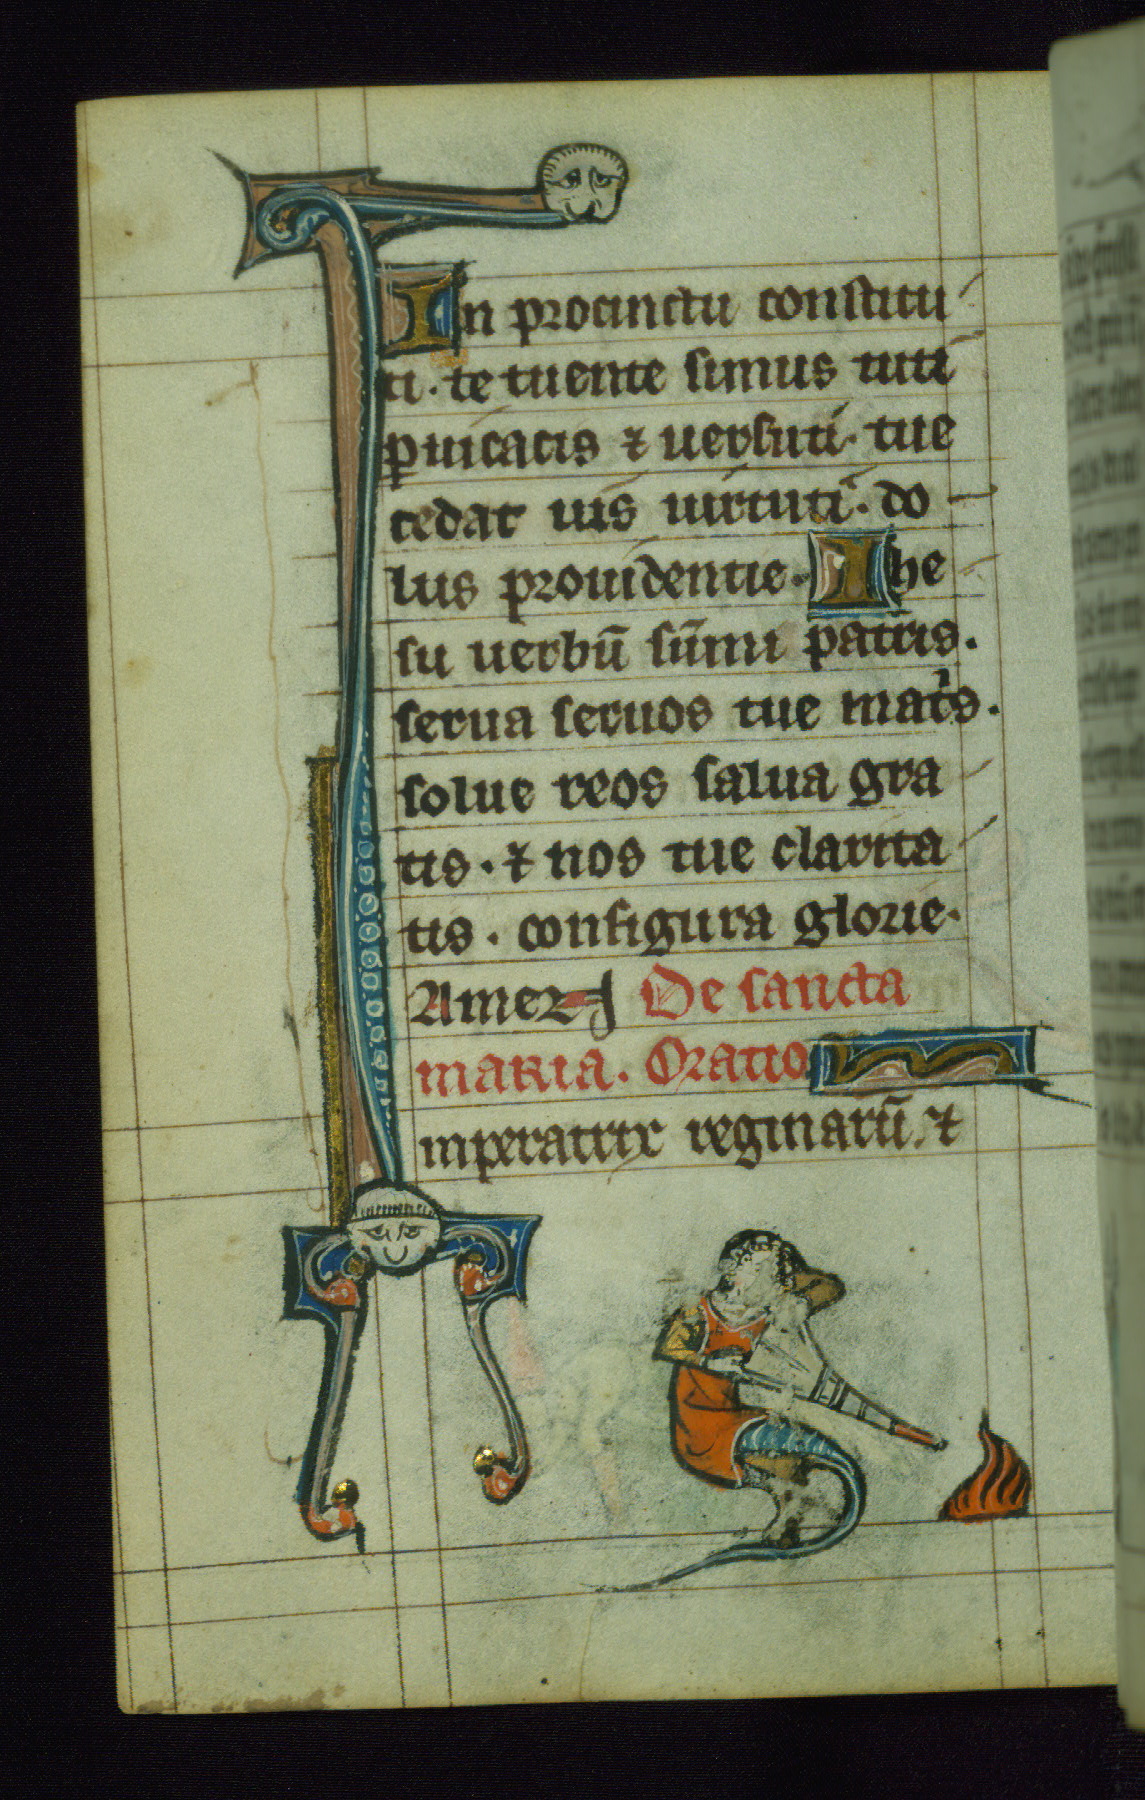 In procinctu constitu
ti. te tuente simus tuti
ꝑuicacis ⁊ uersuti. tue
cedat uis uirtuti. do
lus prouidentie. Ihe
su uerbū sūmi patris.
serua seruos tue mat͛s.
solue reos salua gra
tis. ⁊ nos tue clarita
tis. configura glorie.
Amen De sancta
maria. Oratio
inperatrix reginarū. ⁊